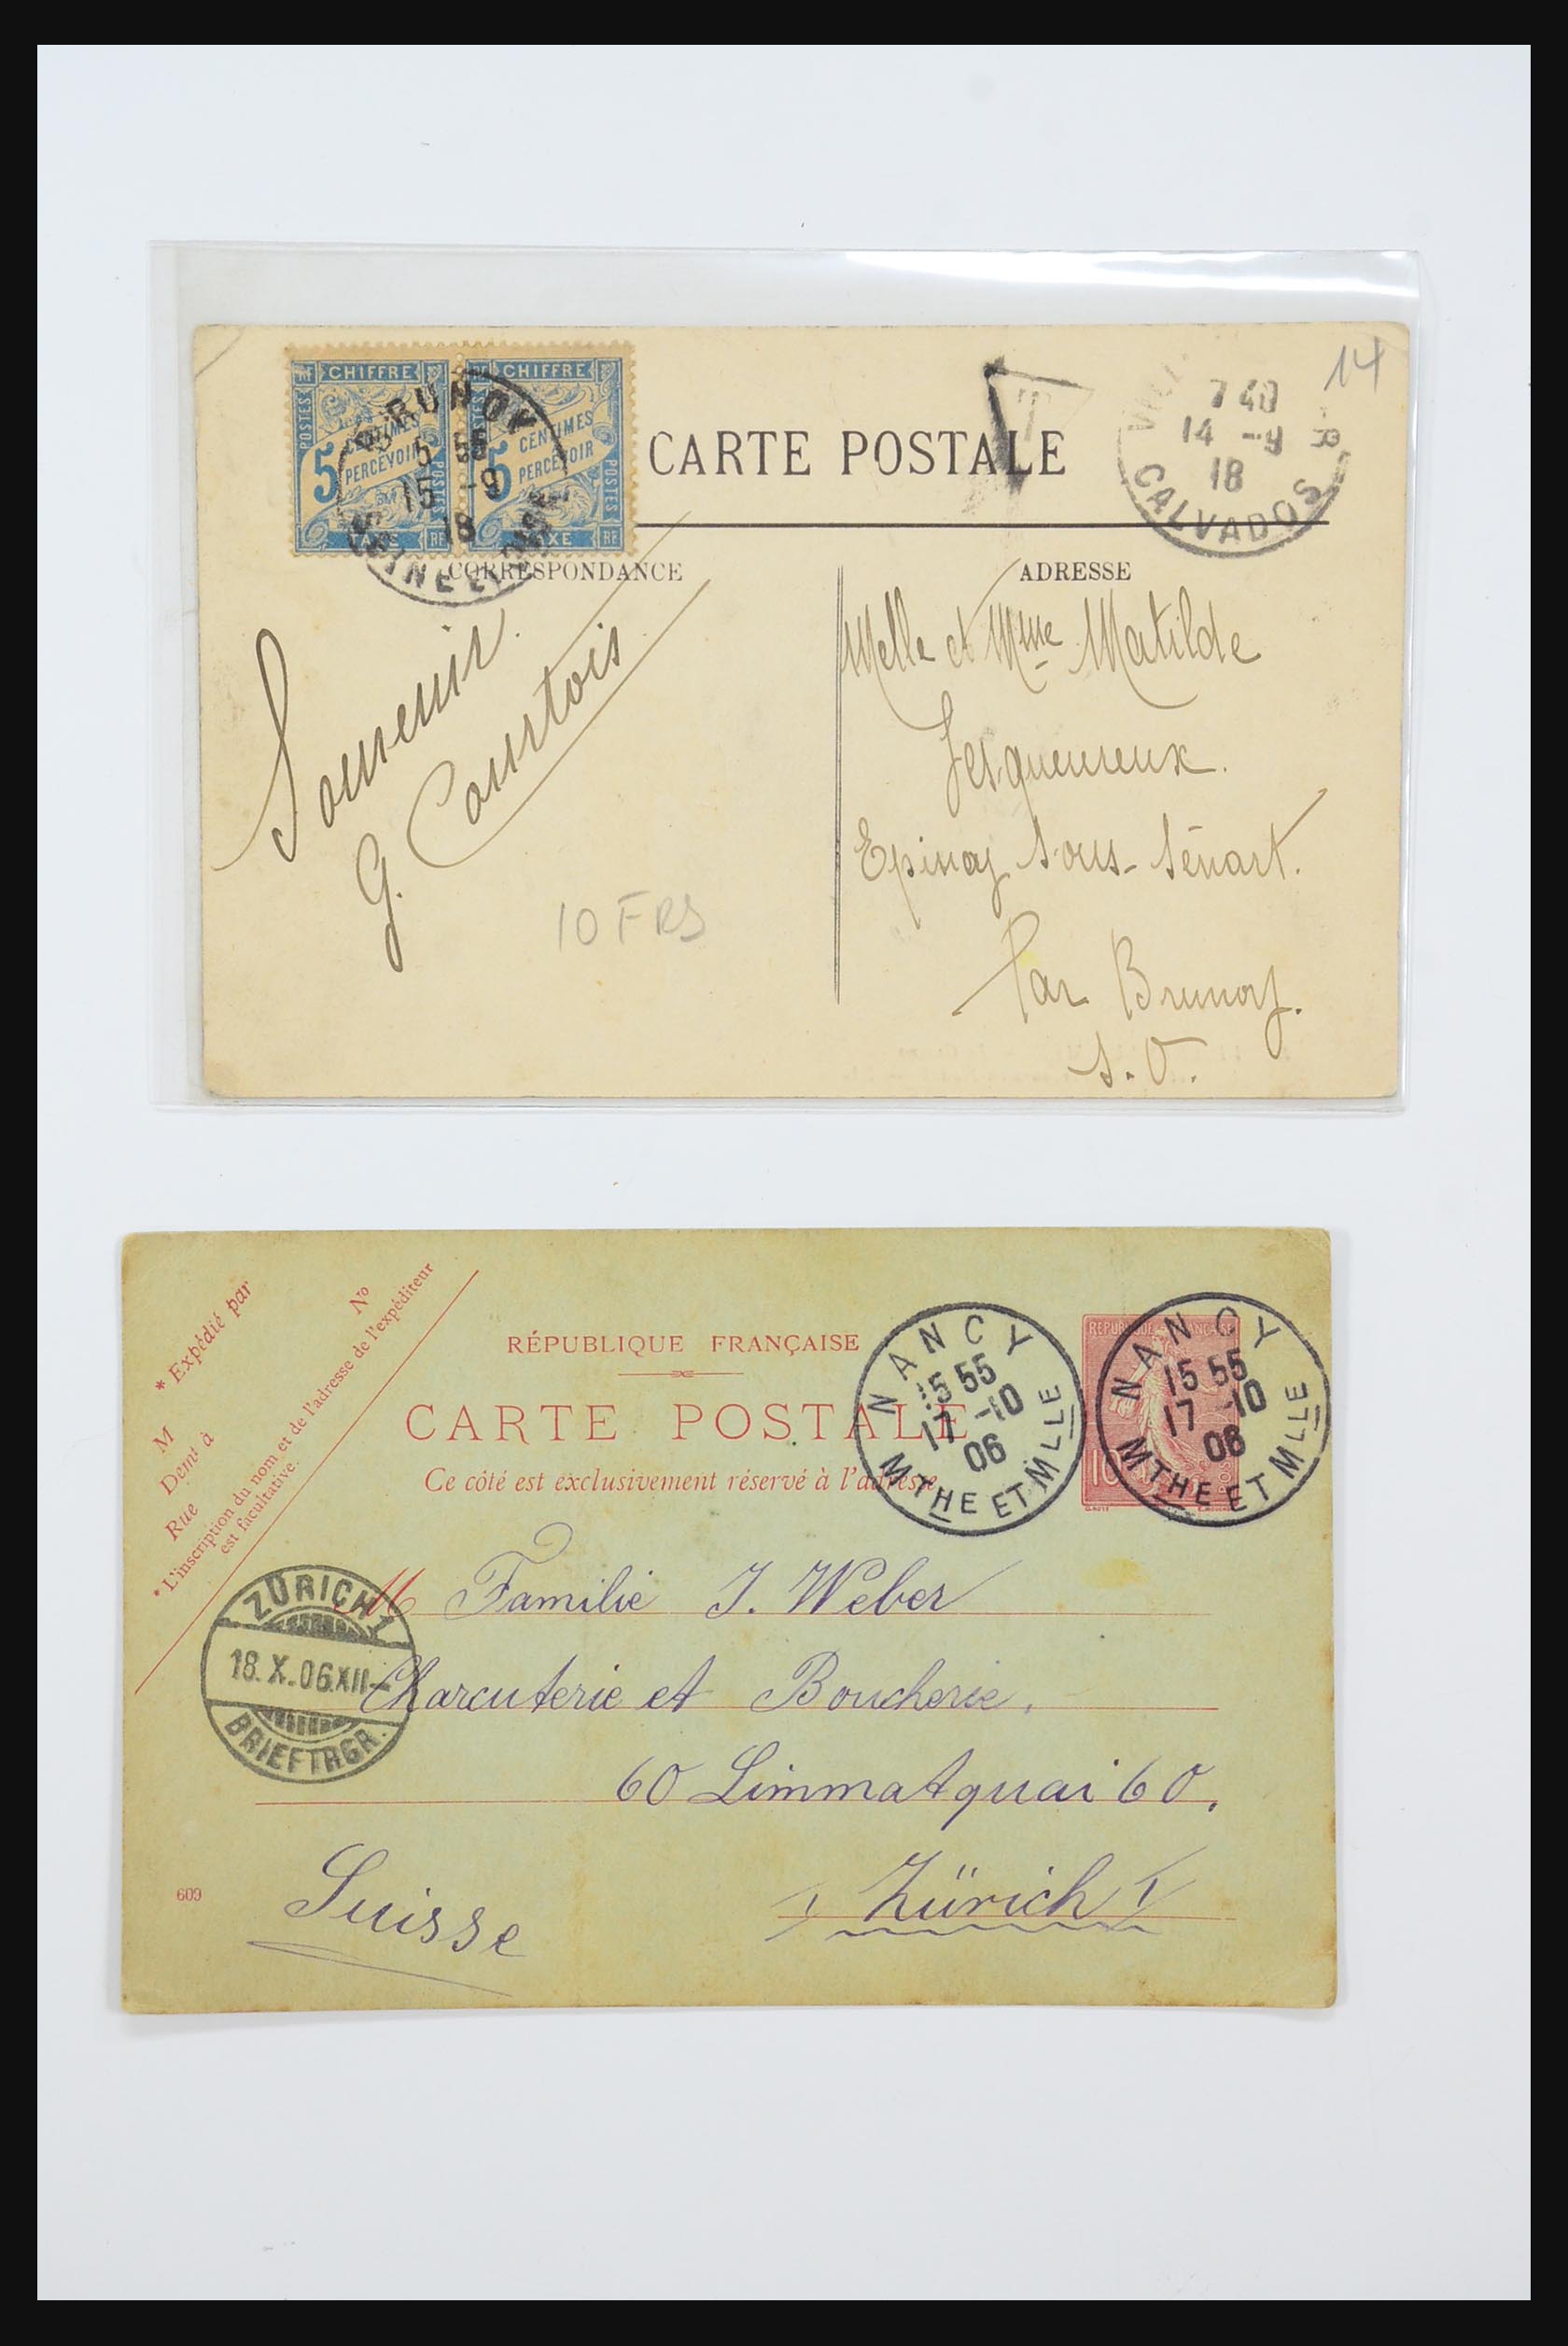 RF CHIFFRE RF CHIFFRE
POSTES 5 CENTIMES À PERCEVOIR POSTES RF
POSTES 5 CENTIMES À PERCEVOIR POSTES TAXE RF
BRUNOY
5 55
15 -9
18
SEINE ET OISE
T
7 40
14 -9
18
CALVADOS
14
CARTE POSTALE
CORRESPONDANCE
ADRESSE
Souvenir
G. Courtois
10 FRS
Melle et Mme Matilde
Epinay sous-Sénart.
Par Brunoy.
S. O.
* Expédié par
M
Demt à
Rue
No
* L'inscription du nom et de l'adresse de l'expéditeur
est facultative.
RÉPUBLIQUE FRANÇAISE
CARTE POSTALE
Ce côté est exclusivement réservé à l'adresse
NANCY
15 55
17 -10
06
MTHE ET MLLE
REPUBLIQUE FRANÇAISE
10
NANCY
15 55
17 -10
06
MTHE ET MLLE
ZÜRICH 1
18.X.06.XII-
BRIEFTRGR.
M Familie J. Weber
Charcuterie et Boucherie.
60 Limmatquai 60.
Zürich I
Suisse
609